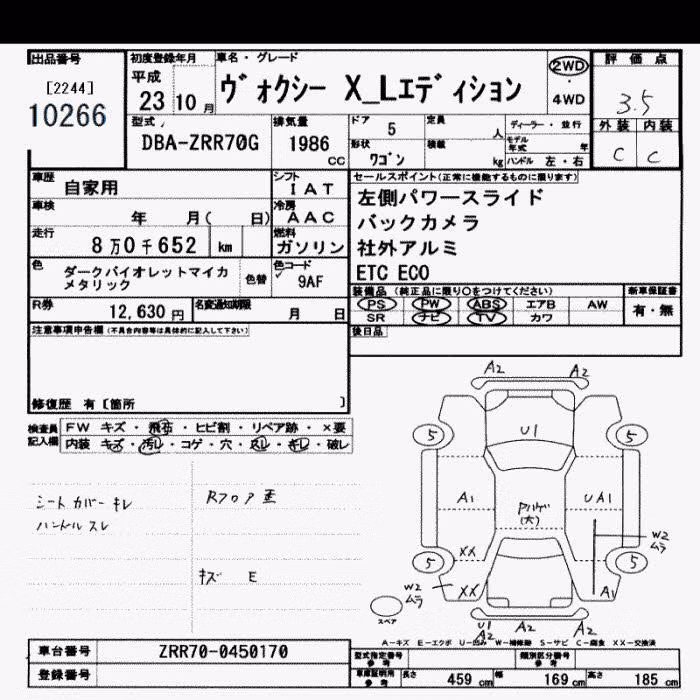 出品番号
[2244]
10266
初度登録年月
平成
23 10 月
車名・グレード
ヴォクシー X_Lエディション
2WD
・
4WD
評価点
3.5
外装 内装
C C
型式
DBA-ZRR70G
排気量
1986
CC
ドア 5
定員 人
形状
ワゴン
積載 kg
ディーラー・並行
モデル年式 年
ハンドル 左・右
車歴
自家用
シフト
IAT
車検
年 月( 日)
冷房
AAC
走行
8万0千652 km
燃料
ガソリン
色
ダークバイオレットマイカ
メタリック
色替
色コード
9AF
R券
12,630円
名変通知期限
月 日
セールスポイント(正常に機能するものに限ります)
左側パワースライド
バックカメラ
社外アルミ
ETC ECO
装備品(純正品に限り○をつけてください)
PS PW ABS エアB AW
SR ナビ TV カワ
新車保証書
有・無
後日品
注意事項申告欄(不具合内容等は具体的に記入して下さい)
修復歴 有[箇所 ]
検査員
記入欄
FW キズ・飛石・ヒビ割・リペア跡・×要
内装 キズ・汚レ・コゲ・穴・スレ・キレ・破レ
シートカバーキレ
ハンドルスレ
Rフロア
キズ E
A2 A2
5 U1 5
A1 Pハゲ(大) UA1
W2
ムラ
XX XX
5 5
W2
ムラ
XX A1
スペア
U1
A2 A2
A－キズ E－エクボ U－凹み W－補修跡 S－サビ C－腐食 XX－交換済
車台番号
ZRR70-0450170
登録番号
型式指定番号
参考
類別区分番号
参考
車庫証明用
参考
長さ 459 cm 幅 169 cm 高さ 185 cm